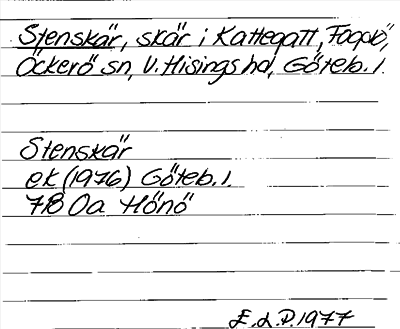 Stenskär, skär i Kattegatt, Fotö,
Öckerö sn, V. Hisings hd, Göteb. l.
Stenskär
ek (1976) Göteb. l.
7B 0a Hönö
E.L.P. 1977